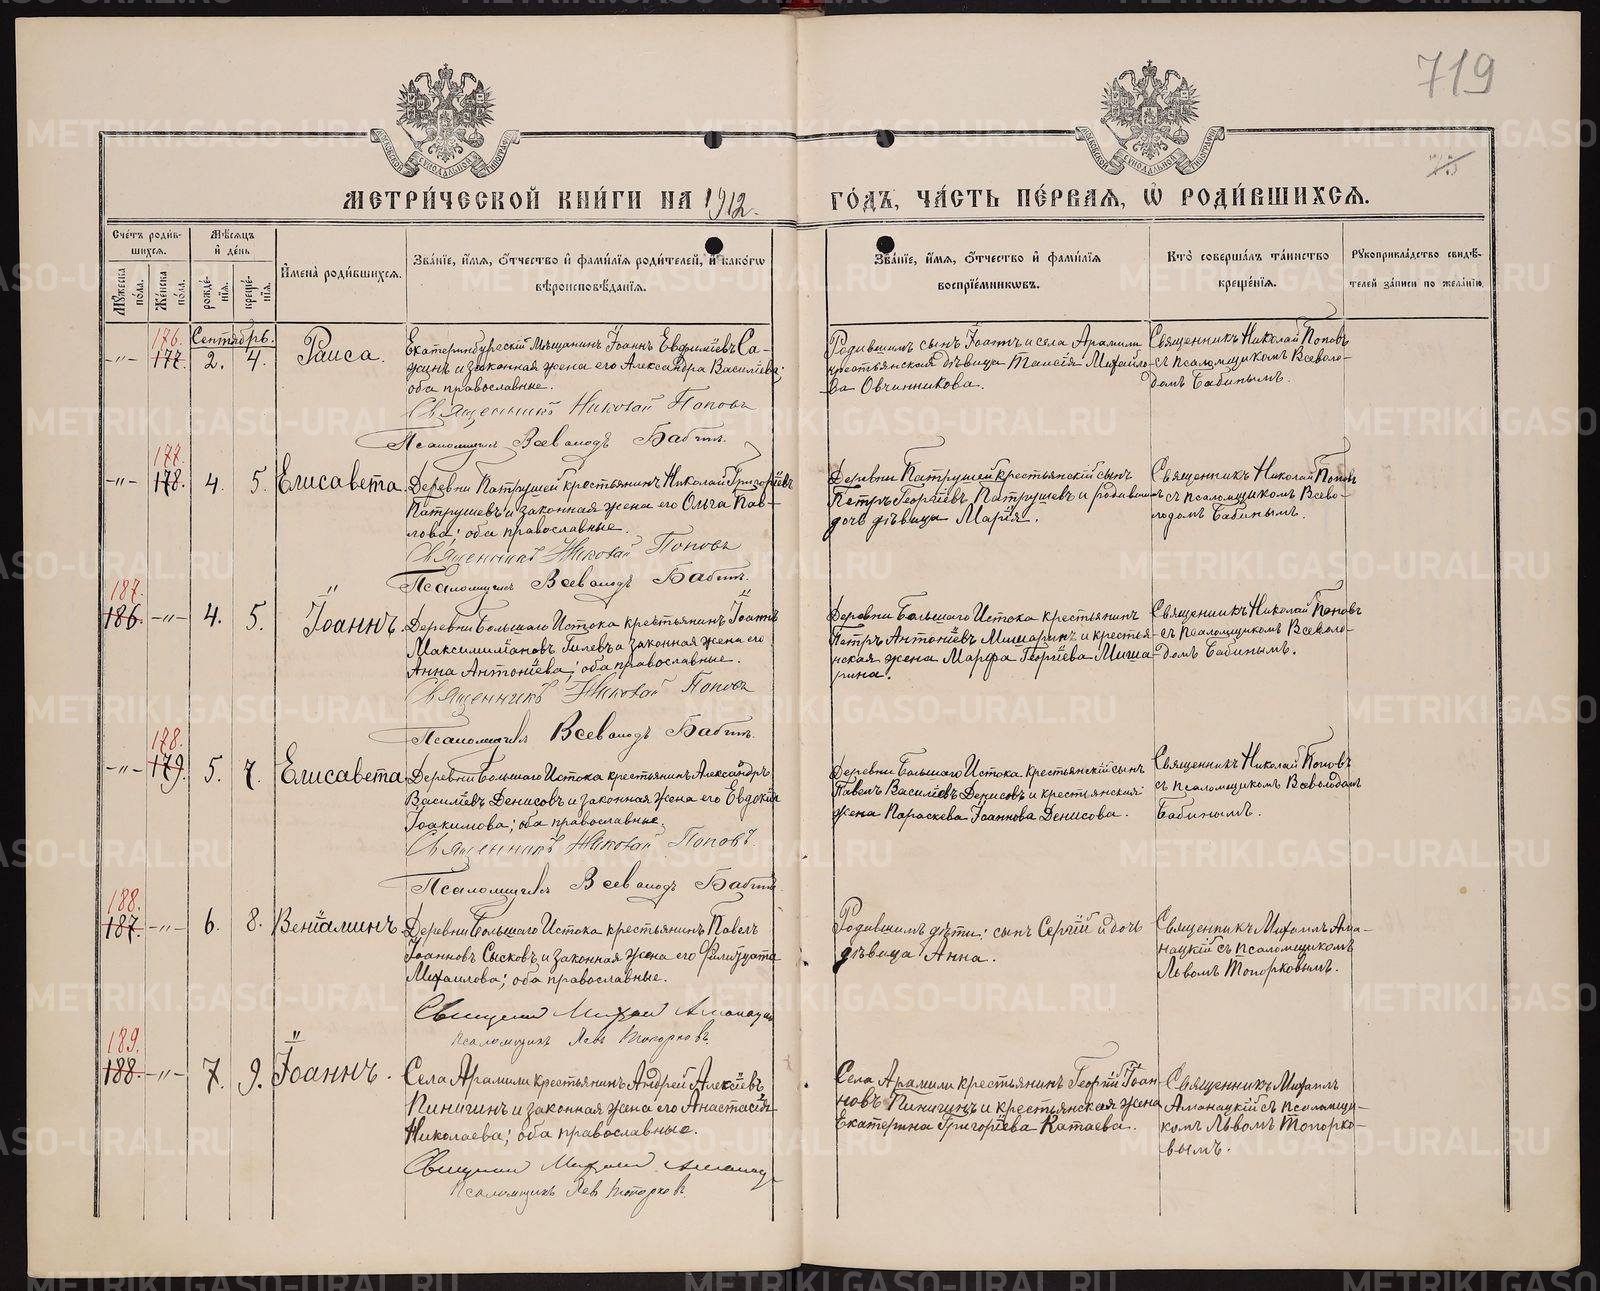 719
МЕТРИ́ЧЕСКОЙ КНИ́ГИ НА 1912. ГО́ДЪ, ЧА́СТЬ ПЕ́РВАЯ, Ѡ РОДИ́ВШИХСЯ.
Сче́тъ роди́в-
шихся.
Му́жеска
по́ла.
Же́нска
по́ла.
Мѣ́сяцъ
и҆ де́нь
рожде́-
нїѧ.
креще́-
нїѧ.
И҆мена̀ роди́вшихсѧ.
Зва́нїе, и҆́мѧ, ѻ҆́тчество и҆ фами́лїѧ роди́телей, и҆ како́гѡ
вѣроисповѣ́данїѧ.
Зва́нїе, и҆́мѧ, ѻ҆́тчество и҆ фами́лїѧ
воспрїе́мникѡвъ.
Кто̀ соверша́лъ та́инство
креще́нїѧ.
Рꙋкоприкла́дство свидѣ́-
телей за́писи по жела́нїю.
176.
Сентябрь.
-"- 177. 2. 4. Раиса.
Екатеринбургскій Мѣщанинъ Іоаннъ Евфиміевъ Са-
жинъ и законная жена его Александра Васильева;
оба православные.
Священникъ Николай Поповъ
Псаломщикъ Всеволодъ Бабинъ.
Родившимъ сынъ Іоаннъ и села Арамили
крестьянская дѣвица Таисія Михайло-
ва Овчинникова.
Священникъ Николай Поповъ
съ псаломщикомъ Всеволо-
домъ Бабинымъ.
177.
-"- 178. 4. 5. Елисавета.
Деревни Патрушей крестьянинъ Николай Григоріевъ
Патрушевъ и законная жена его Ольга Пав-
лова; оба православные.
Священникъ Николай Поповъ
Псаломщикъ Всеволодъ Бабинъ.
Деревни Патрушей крестьянскій сынъ
Петръ Георгіевъ Патрушевъ и родившимъ
дочь дѣвица Марія.
Священникъ Николай Поповъ
съ псаломщикомъ Всево-
лодомъ Бабинымъ.
187.
186. -"- 4. 5. Іоаннъ.
Деревни Большаго Истока крестьянинъ Іоаннъ
Максимиліановъ Гилевъ и законная жена его
Анна Антоніева; оба православные.
Священникъ Николай Поповъ
Псаломщикъ Всеволодъ Бабинъ.
Деревни Большаго Истока крестьянинъ
Петръ Антоніевъ Мишаринъ и крестья-
нская жена Марфа Георгіева Миша-
рина.
Священникъ Николай Поповъ
съ псаломщикомъ Всеволо-
домъ Бабинымъ.
178.
-"- 179. 5. 7. Елисавета
Деревни Большаго Истока крестьянинъ Александръ
Василіевъ Денисовъ и законная жена его Евдокія
Іоакимова; оба православные.
Священникъ Николай Поповъ.
Псаломщикъ Всеволодъ Бабинъ
Деревни Большаго Истока крестьянскій сынъ
Павелъ Василіевъ Денисовъ и крестьянская
жена Параскева Іоаннова Денисова.
Священникъ Николай Поповъ
съ псаломщикомъ Всеволодомъ
Бабинымъ.
188.
187. -"- 6. 8. Веніаминъ.
Деревни Большаго Истока крестьянинъ Павелъ
Іоанновъ Сысковъ и законная жена его Филицата
Михаилова; оба православные.
Священникъ Михаил Аманацкій
Псаломщикъ Левъ Топорковъ.
Родившимъ дѣти: сынъ Сергій и дочь
дѣвица Анна.
Священникъ Михаилъ Ама-
нацкій съ псаломщикомъ
Львомъ Топорковымъ.
189.
188. -"- 7. 9. Іоаннъ.
Села Арамили крестьянинъ Андрей Алексіевъ
Пинигинъ и законная жена его Анастасія
Николаева; оба православные.
Священникъ Михаил Аманацкій
Псаломщикъ Левъ Топорковъ.
Села Арамили крестьянинъ Георгій Іоан-
новъ Пинигинъ и крестьянская жена
Екатерина Григоріева Катаева.
Священникъ Михаилъ
Аманацкій съ псаломщи-
комъ Львомъ Топорко-
вымъ.